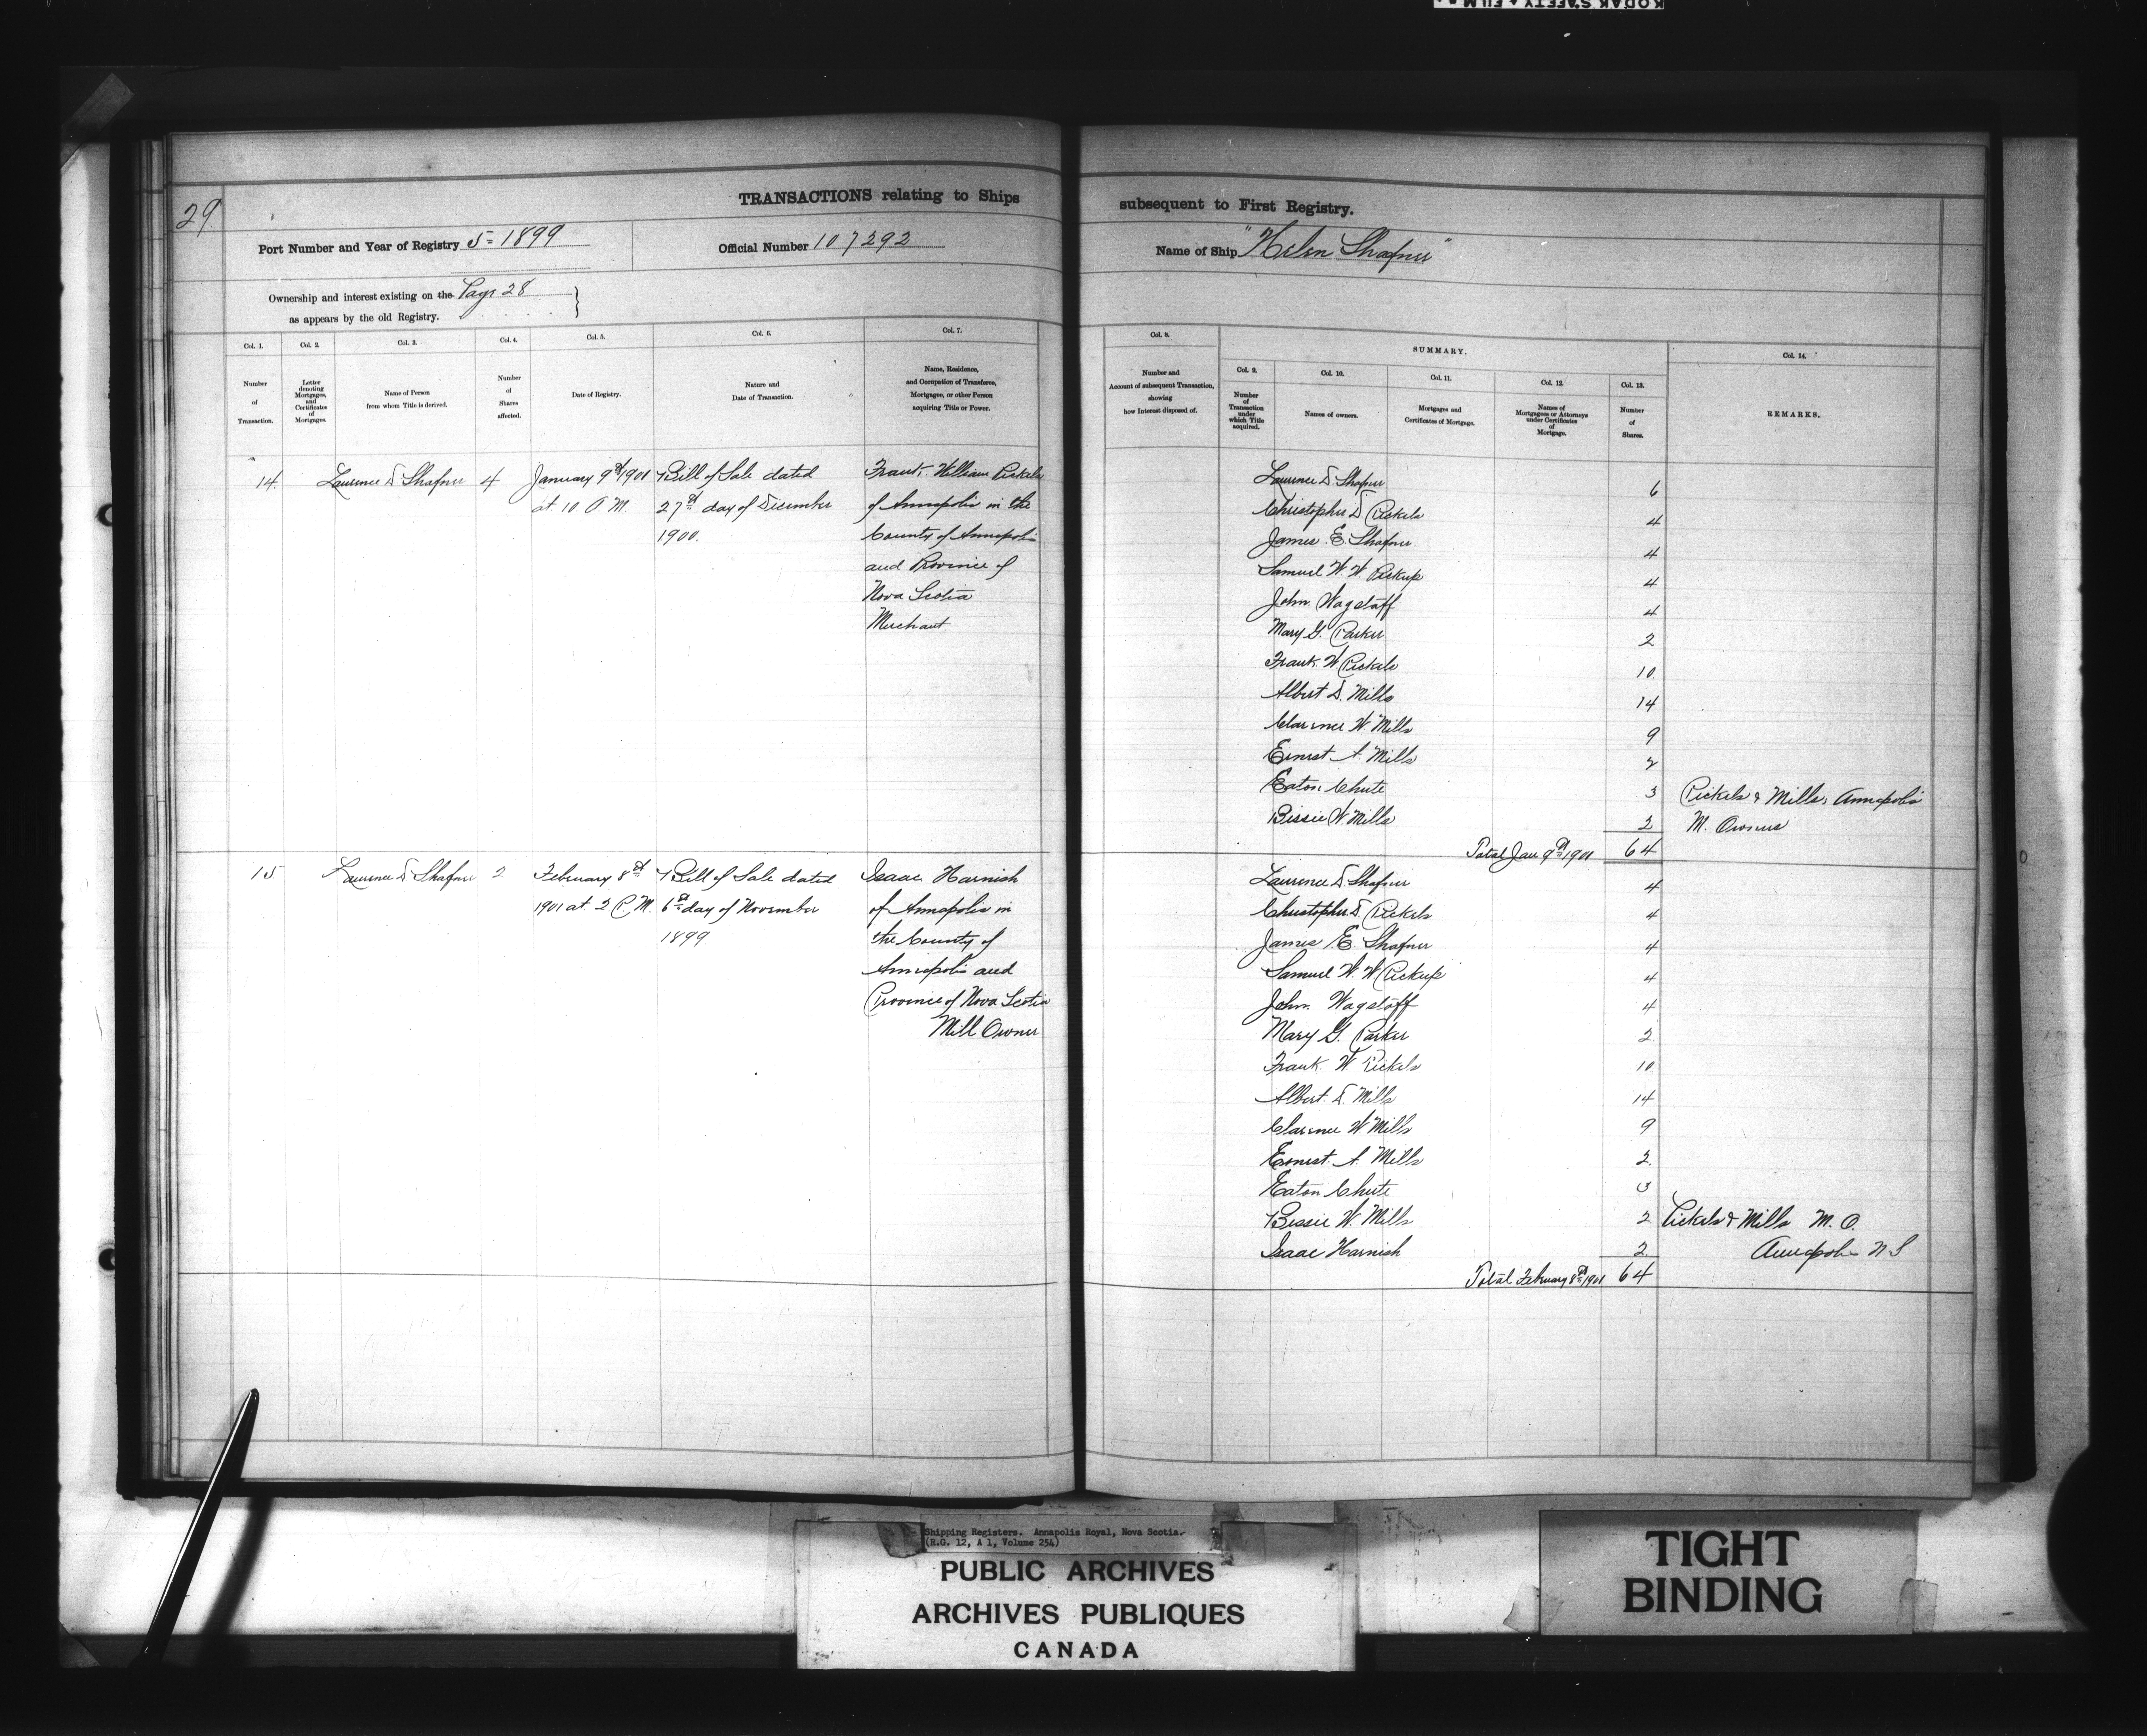 KODAK SAFETY FILM
29.
TRANSACTIONS relating to Ships
subsequent to First Registry.
Port Number and Year of Registry 5 = 1899
Official Number 107292
Name of Ship "Helen Shafner"
Ownership and interest existing on the Page 28
as appears by the old Registry.
Col. 1.
Number
of
Transaction.
Col. 2.
Letter
denoting
Mortgages,
and
Certificates
of
Mortgages.
Col. 3.
Name of Person
from whom Title is derived.
Col. 4.
Number
of
Shares
affected.
Col. 5.
Date of Registry.
Col. 6.
Nature and
Date of Transaction.
Col. 7.
Name, Residence,
and Occupation of Transferee,
Mortgagee, or other Person
acquiring Title or Power.
Col. 8.
Number and
Account of subsequent Transaction,
showing
how Interest disposed of.
SUMMARY.
Col. 9.
Number
of
Transaction
under
which Title
acquired.
Col. 10.
Names of owners.
Col. 11.
Mortgages and
Certificates of Mortgage.
Col. 12.
Names of
Mortgagees or Attorneys
under Certificates
of
Mortgage.
Col. 13.
Number
of
Shares.
Col. 14.
REMARKS.
14.
Laurence D Shafner
4
January 9th 1901
at 10 A. M.
Bill of Sale dated
27th day of December
1900.
Frank William Pickels
of Annapolis in the
County of Annapolis
and Province of
Nova Scotia
Merchant
Laurence D. Shafner 6
Christopher D. Pickels 4
James E. Shafner 4
Samuel W. W. Pickup 4
John Wagstaff 4
Mary G. Parker 2
Frank W. Pickels 10
Albert D. Mills 14
Clarence W. Mills 9
Ernest A. Mills 2
Eaton Chute 3 Pickels & Mills, Annapolis
Bessie W. Mills 2 M. Owners
Total Jan 9th 1901 64
15
Laurence D Shafner
2
February 8th
1901 at 2 P. M.
Bill of Sale dated
6th day of November
1899
Isaac Harnish
of Annapolis in
the County of
Annapolis and
Province of Nova Scotia
Mill Owner
Laurence D. Shafner 4
Christopher D. Pickels 4
James E. Shafner 4
Samuel W. W. Pickup 4
John Wagstaff 4
Mary G. Parker 2
Frank W. Pickels 10
Albert D. Mills 14
Clarence W. Mills 9
Ernest A. Mills 2
Eaton Chute 3
Bessie W. Mills 2 Pickels & Mills M. O.
Isaac Harnish 2 Annapolis N S
Total February 8th 1901 64
Shipping Registers. Annapolis Royal, Nova Scotia.
(R.G. 12, A 1, Volume 254)
PUBLIC ARCHIVES
ARCHIVES PUBLIQUES
CANADA
TIGHT
BINDING